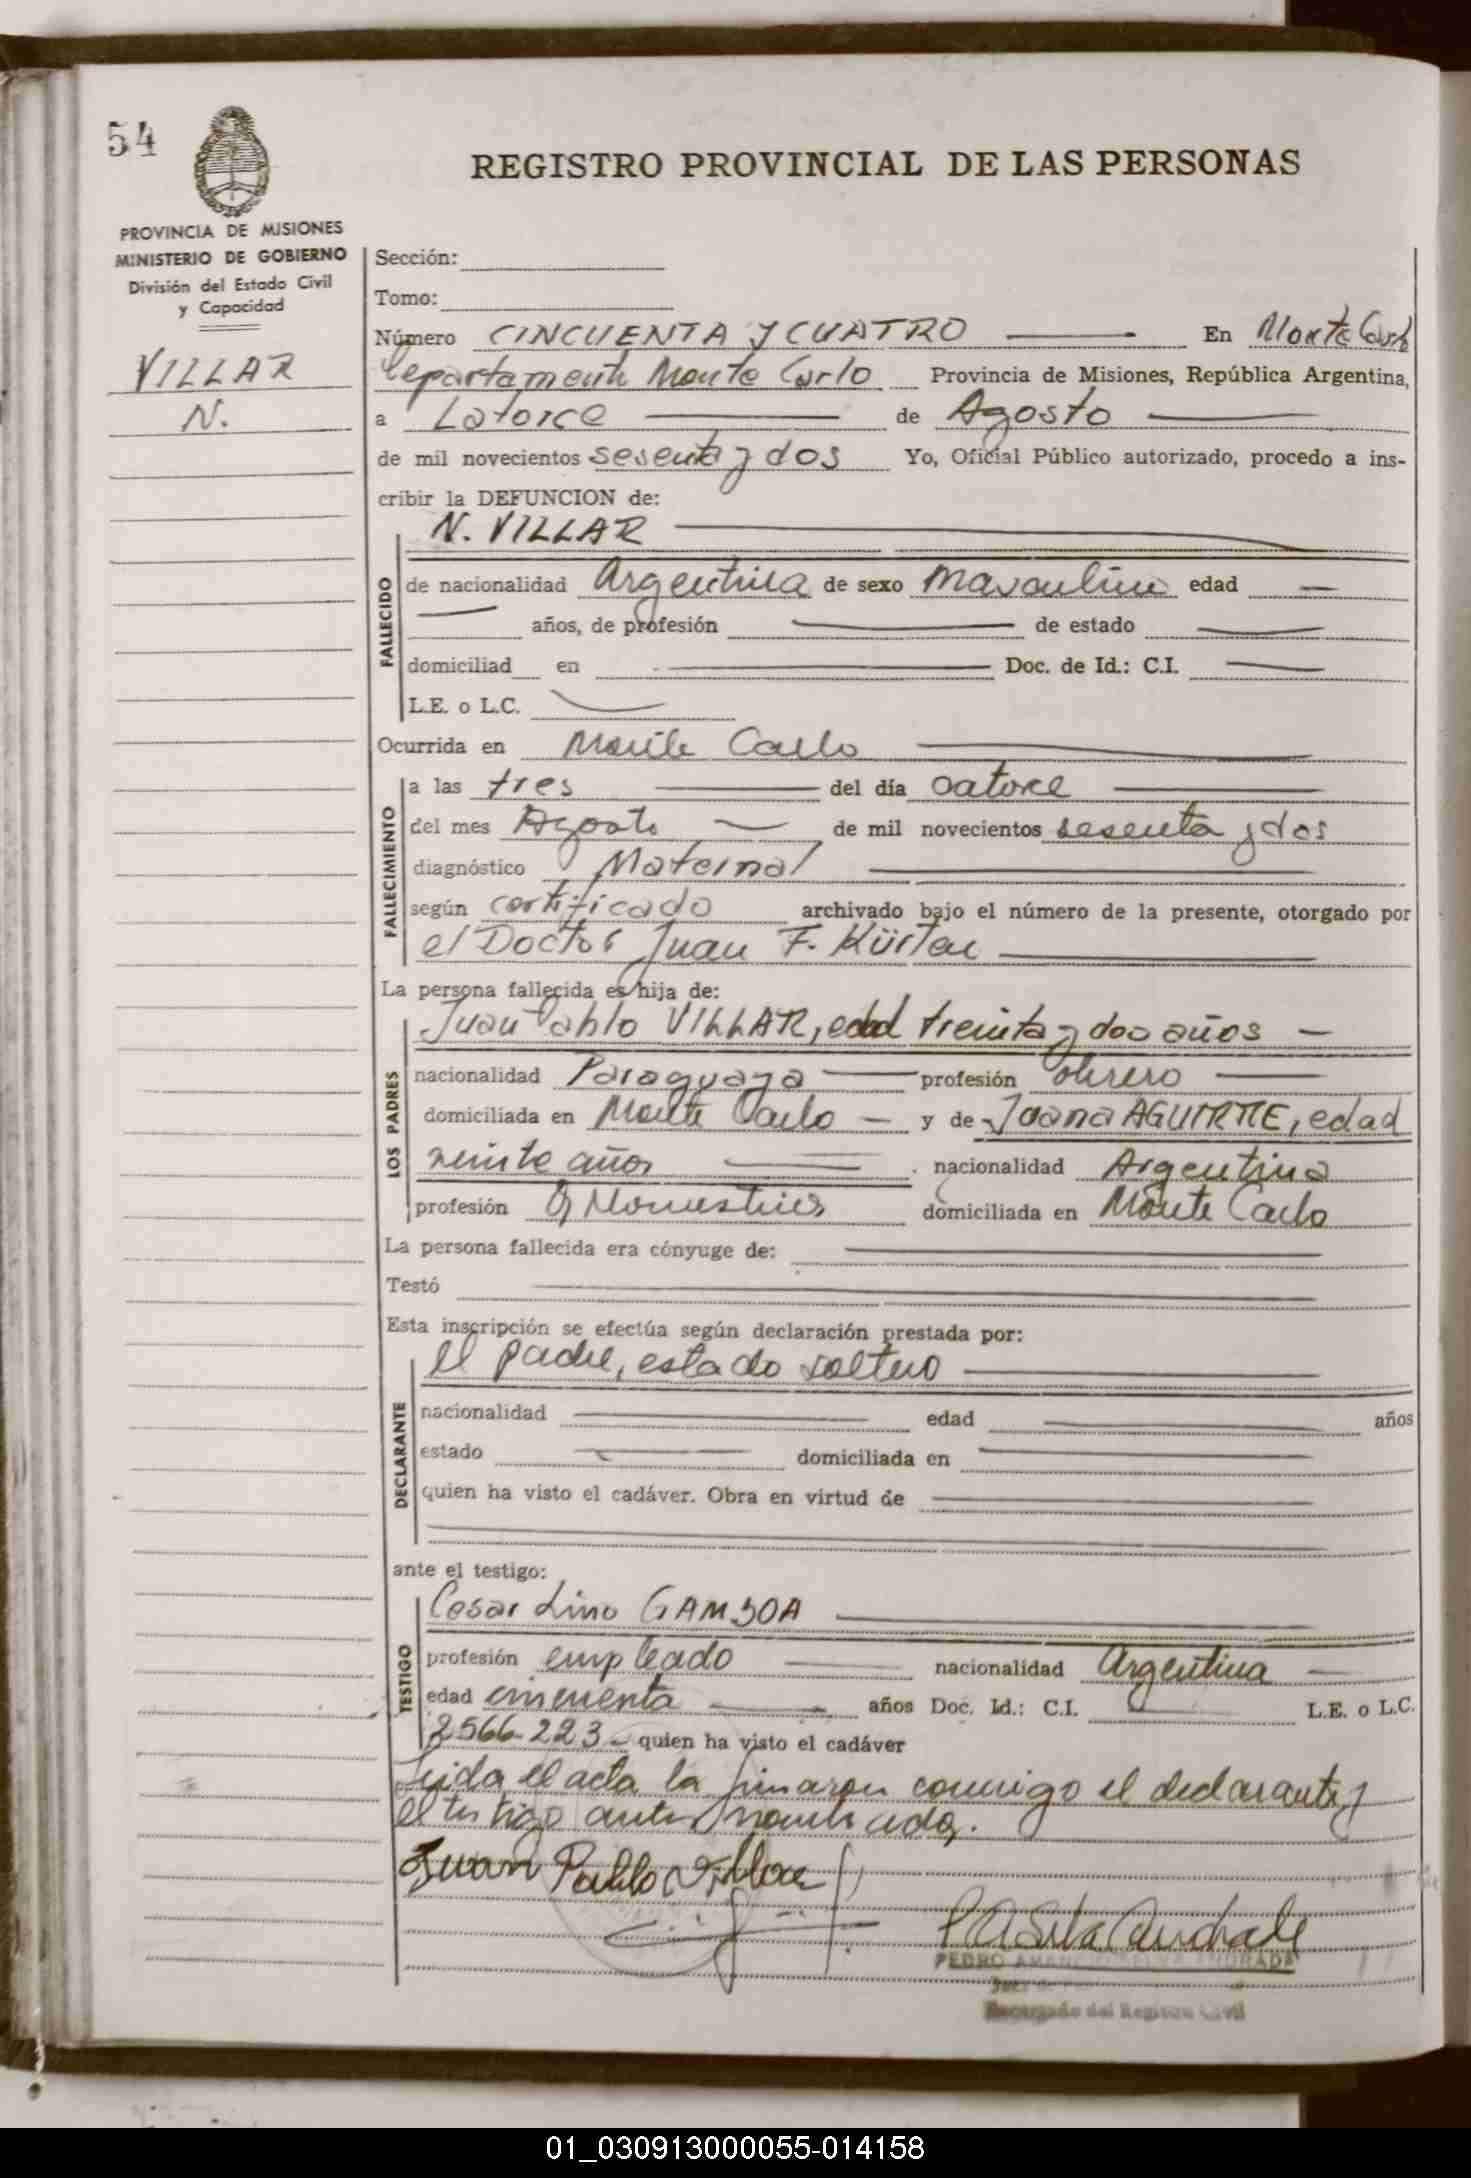 54
REGISTRO PROVINCIAL DE LAS PERSONAS
PROVINCIA DE MISIONES
MINISTERIO DE GOBIERNO
División del Estado Civil
y Capacidad
VILLAR
N.
Sección:
Tomo:
Número CINCUENTA Y CUATRO En Monte Carlo
Departamento Monte Carlo Provincia de Misiones, República Argentina,
a Catorce de Agosto
de mil novecientos sesenta y dos Yo, Oficial Público autorizado, procedo a ins-
cribir la DEFUNCION de:
N. VILLAR
FALLECIDO
de nacionalidad Argentina de sexo Masculino edad —
años, de profesión — de estado —
domiciliad en — Doc. de Id.: C.I. —
L.E. o L.C. —
Ocurrida en Monte Carlo
FALLECIMIENTO
a las tres del día catorce
del mes Agosto de mil novecientos sesenta y dos
diagnóstico Maternal
según certificado archivado bajo el número de la presente, otorgado por
el Doctor Juan F. Kürten
La persona fallecida es hija de:
LOS PADRES
Juan Pablo VILLAR, edad treinta y dos años —
nacionalidad Paraguaya profesión obrero
domiciliada en Monte Carlo — y de Juana AGUIRRE, edad
veinte años nacionalidad Argentina
profesión Q. Domesticos domiciliada en Monte Carlo
La persona fallecida era cónyuge de:
Testó
Esta inscripción se efectúa según declaración prestada por:
DECLARANTE
el padre, estado soltero
nacionalidad — edad — años
estado — domiciliada en —
quien ha visto el cadáver. Obra en virtud de —
ante el testigo:
TESTIGO
Cesar Lino GAMBOA
profesión empleado nacionalidad Argentina —
edad cincuenta años Doc. Id.: C.I. — L.E. o L.C.
2566223 – quien ha visto el cadáver
Leida el acta la firmaron conmigo el declarante y
el testigo antes nombrado.
Juan Pablo Villar
PEDRO AMANCIO SILVA ANDRADA
Encargado del Registro Civil
01_030913000055-014158